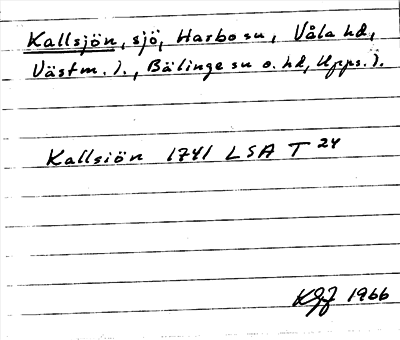 Kallsjön, sjö, Harbo sn, Våla hd,
Västm. l., Bälinge sn o. hd, Upps. l.
Kallsiön 1741 LSA T 24
KGJ 1966